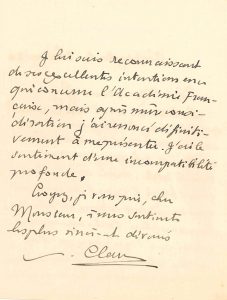 Je lui suis reconnaissant
de ses excellentes intentions en ce
qui concerne l'Académie Fran-
çaise, mais après mûre consi-
dération j'ai renoncé définiti-
vement à me présenter. J'ai le
sentiment d'une incompatibilité
profonde.
Croyez, je vous prie, cher
Monsieur, à mes sentiments
les plus sincèrement dévoués